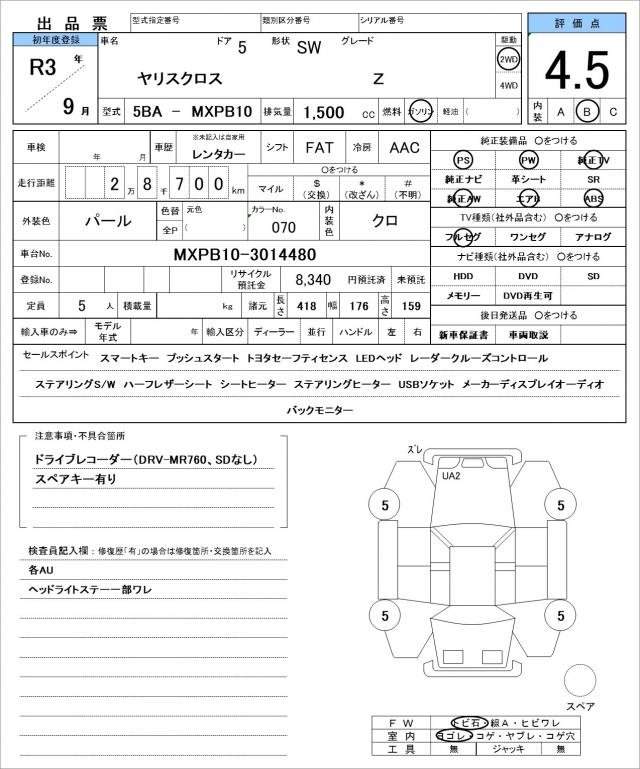 出品票 型式指定番号 類別区分番号 シリアル番号
初年度登録 車名 ドア 5 形状 SW グレード 駆動 評価点
R3 年 ヤリスクロス Z 2WD 4.5
9 月 4WD
型式 5BA － MXPB10 排気量 1,500 cc 燃料 ガソリン 軽油 ( ) 内装 A B C
車検 年 月 車歴 ※未記入は自家用 レンタカー シフト FAT 冷房 AAC 純正装備品 〇をつける
走行距離 2 万 8 千 7 0 0 km 〇をつける PS PW 純正TV
マイル $ (交換) * (改ざん) # (不明) 純正ナビ 革シート SR
純正AW エアB ABS
外装色 パール 色替 元色 カラーNo. 070 内装色 クロ TV種類(社外品含む) 〇をつける
全P ( ) フルセグ ワンセグ アナログ
車台No. MXPB10-3014480 ナビ種類(社外品含む) 〇をつける
登録No. リサイクル預託金 8,340 円預託済 未預託 HDD DVD SD
メモリー DVD再生可
定員 5 人 積載量 kg 諸元 長さ 418 幅 176 高さ 159 後日発送品 〇をつける
輸入車のみ⇒ モデル年式 年 輸入区分 ディーラー 並行 ハンドル 左 右 新車保証書 車両取説
セールスポイント スマートキー プッシュスタート トヨタセーフティセンス LEDヘッド レーダークルーズコントロール
ステアリングS/W ハーフレザーシート シートヒーター ステアリングヒーター USBソケット メーカーディスプレイオーディオ
バックモニター
注意事項・不具合箇所
ドライブレコーダー(DRV-MR760、SDなし)
スペアキー有り
検査員記入欄：修復歴「有」の場合は修復箇所・交換箇所を記入
各AU
ヘッドライトステー一部ワレ
ズレ
UA2
5 5
5 5
スペア
FW トビ石・線A・ヒビワレ
室内 ヨゴレ・コゲ・ヤブレ・コゲ穴
工具 無 ジャッキ 無